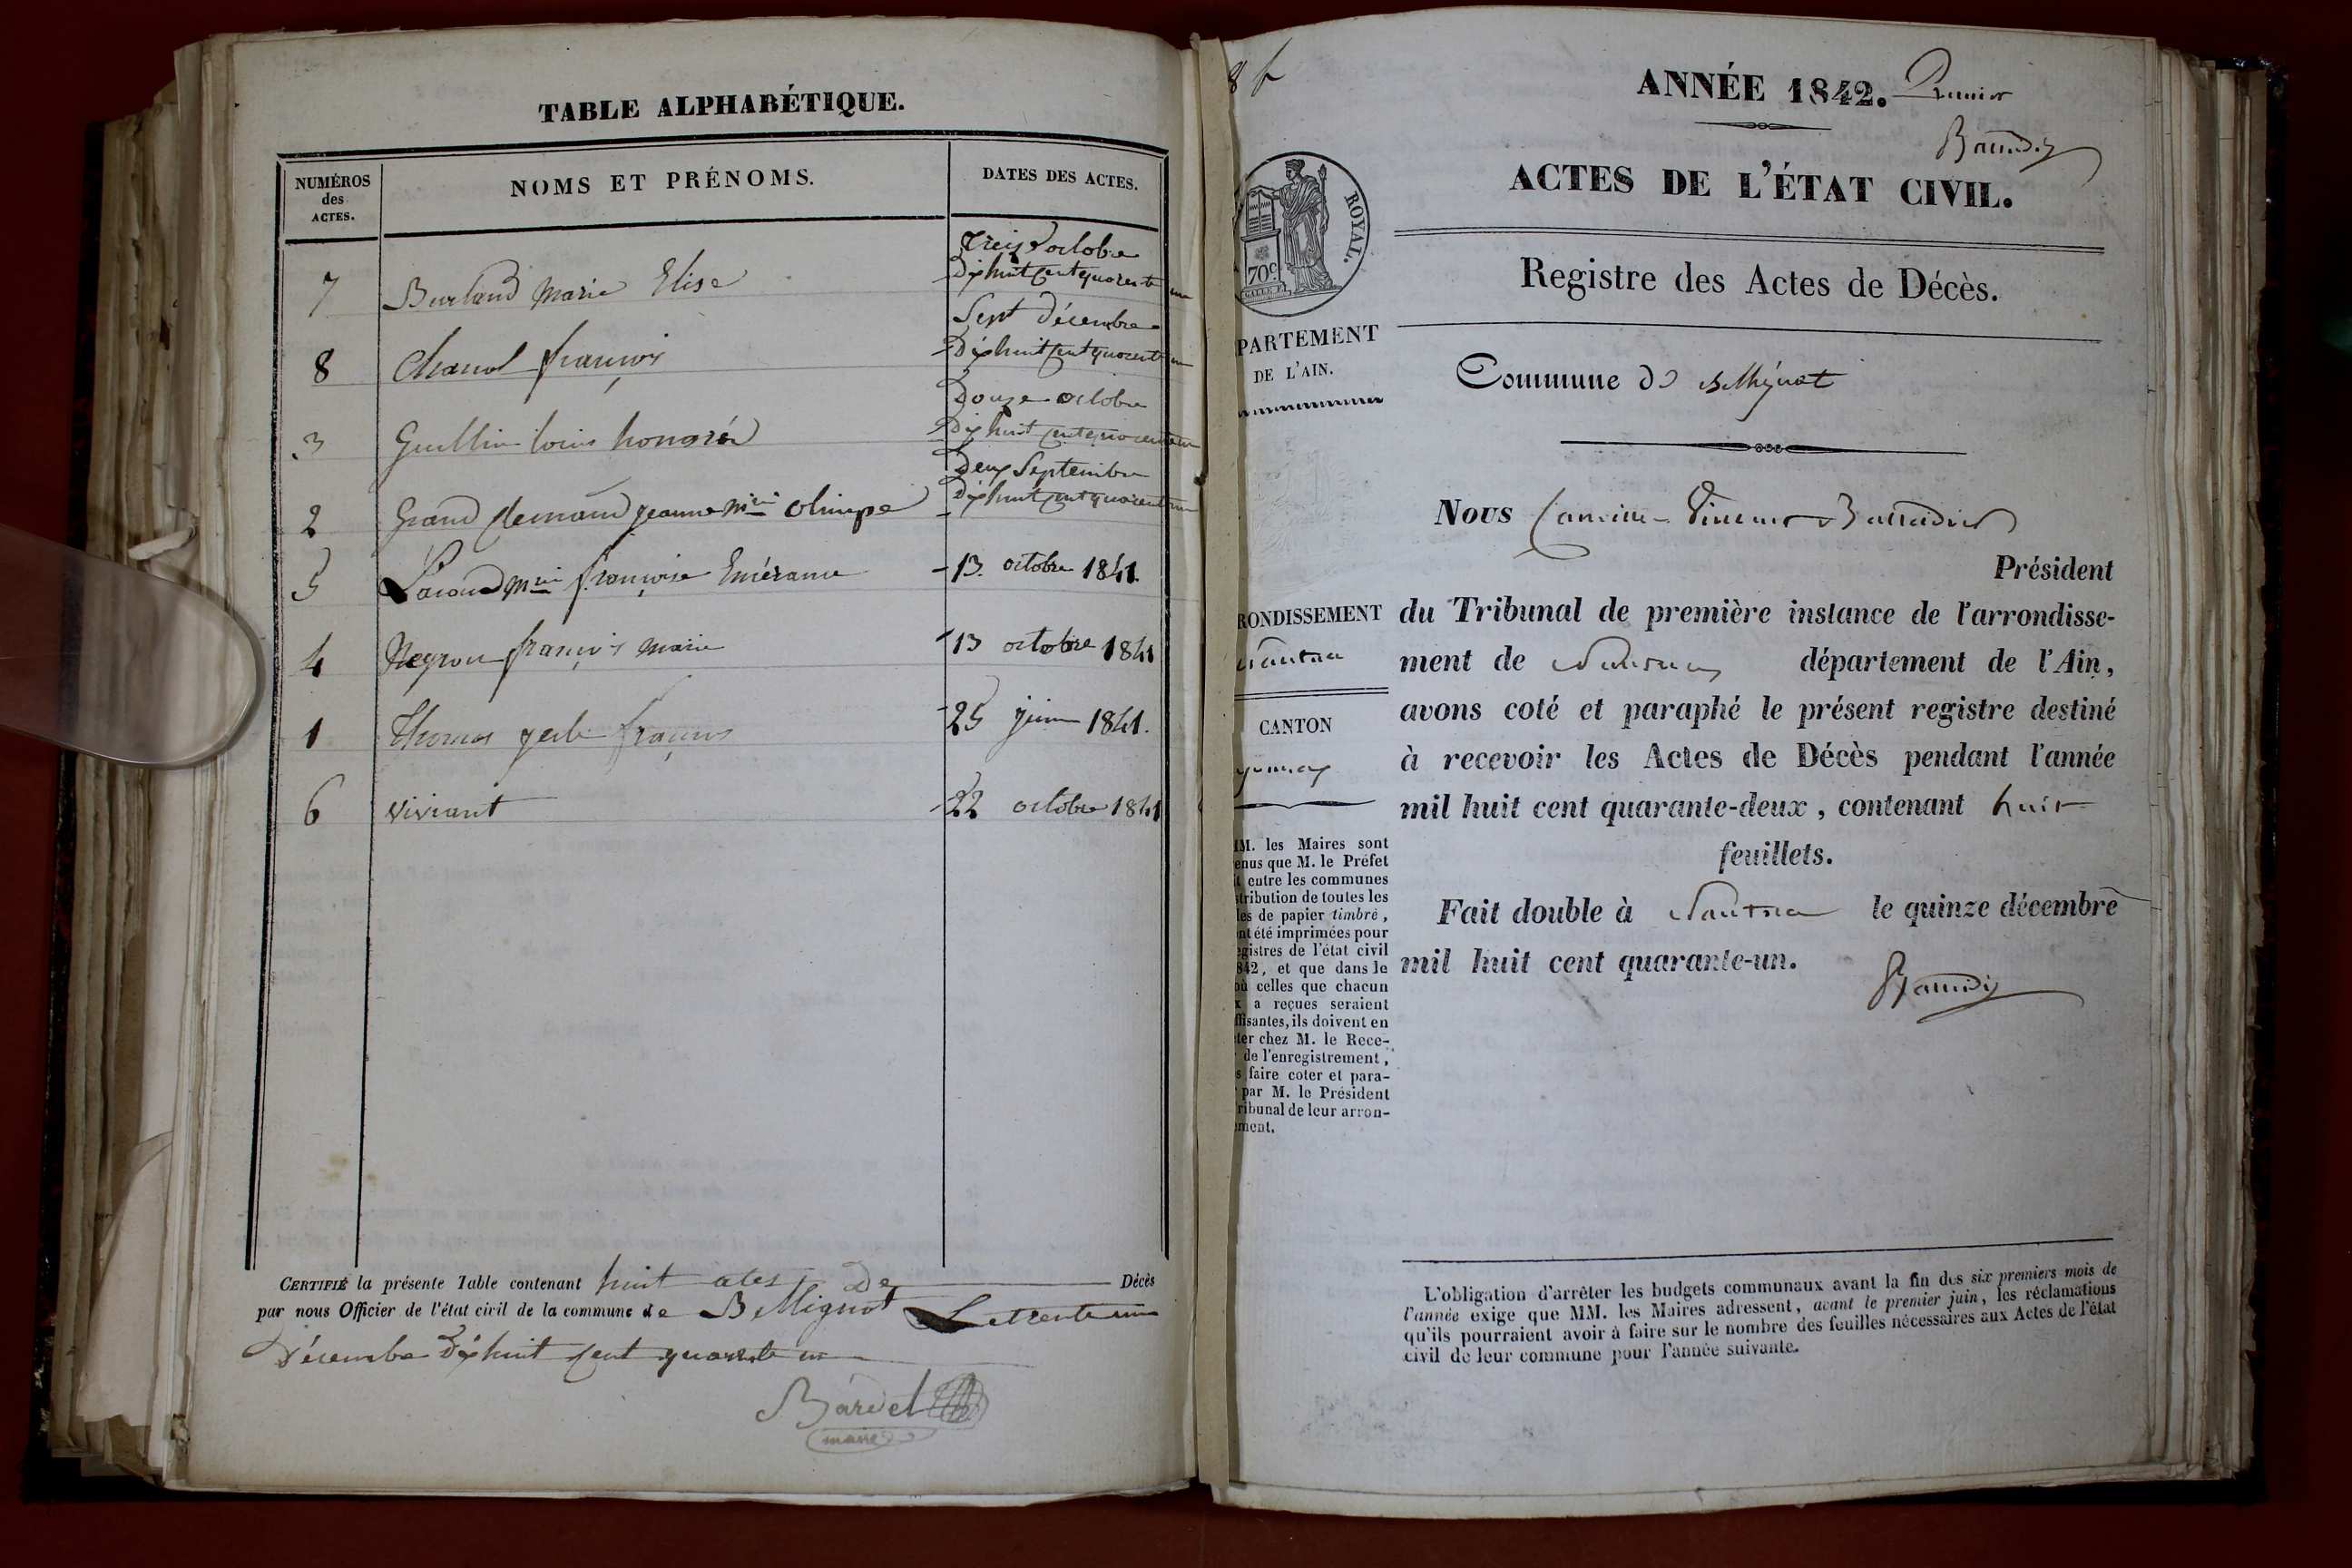 TABLE ALPHABÉTIQUE.
NUMÉROS des ACTES.
NOMS ET PRÉNOMS.
DATES DES ACTES.
7 Burland Marie Elise Treize octobre
Dix huit cent quarente un
8 Chanol françois Sept décembre
Dix huit cent quarente un
3 Guillin louis honoré Douze octobre
Dix huit cent quarente un
2 Grand clement jeanne Mie olimpe Deux Septembre
Dix huit cent quarente un
5 Mie françoise Emérance 13 octobre 1841.
4 Neyron françois marie 13 octobre 1841
1 Thomas françois 25 juin 1841.
6 Viviant 22 octobre 1841
CERTIFIÉ la présente Table contenant huit actes De Décès
par nous Officier de l'état civil de la commune de Bellignat Le trente un
Décembre Dix huit cent quarante un
Bardet
maire
8 f
ANNÉE 1842. Premier
Baudin
ACTES DE L'ÉTAT CIVIL.
Registre des Actes de Décès.
ROYAL.
70c
PARTEMENT
DE L'AIN.
Commune de Bellignat
Nous Vincent
Président
RONDISSEMENT
Nantua
CANTON
yonnax
du Tribunal de première instance de l'arrondisse-
ment de Nantua département de l'Ain,
avons coté et paraphé le présent registre destiné
à recevoir les Actes de Décès pendant l'année
mil huit cent quarante-deux, contenant huit
feuillets.
Fait double à Nantua le quinze décembre
mil huit cent quarante-un.
MM. les Maires sont
enus que M. le Préfet
it entre les communes
stribution de toutes les
les de papier timbré,
nt été imprimées pour
egistres de l'état civil
842, et que dans le
où celles que chacun
x a reçues seraient
ffisantes, ils doivent en
ter chez M. le Rece-
de l'enregistrement,
s faire coter et para-
par M. le Président
ribunal de leur arron-
ement.
L'obligation d'arrêter les budgets communaux avant la fin des six premiers mois de
l'année exige que MM. les Maires adressent, avant le premier juin, les réclamations
qu'ils pourraient avoir à faire sur le nombre des feuilles nécessaires aux Actes de l'état
civil de leur commune pour l'année suivante.